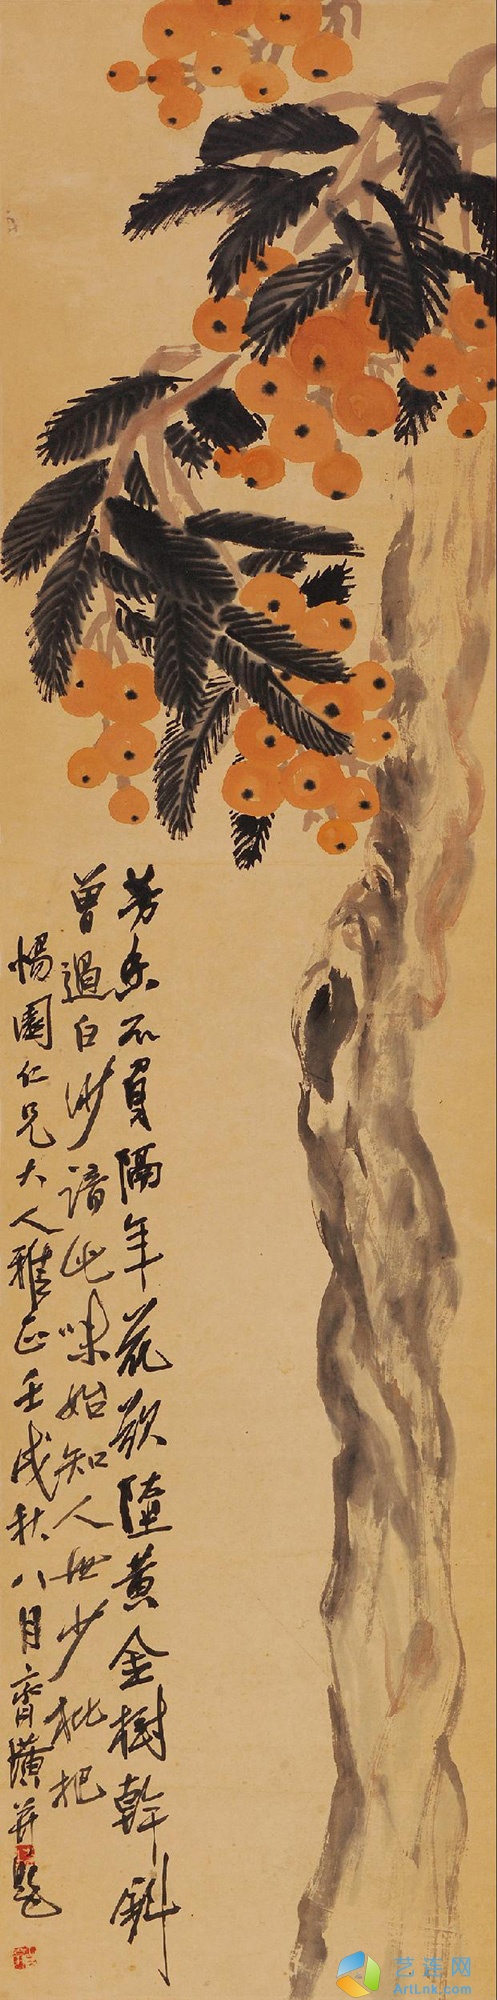 芳香不負隔年花欲墮黃金樹幹斜
曾過白沙諳此味始知人世少枇杷
惕園仁兄大人雅正壬戌秋八月齊璜并題
艺连网
ArtLnk.com